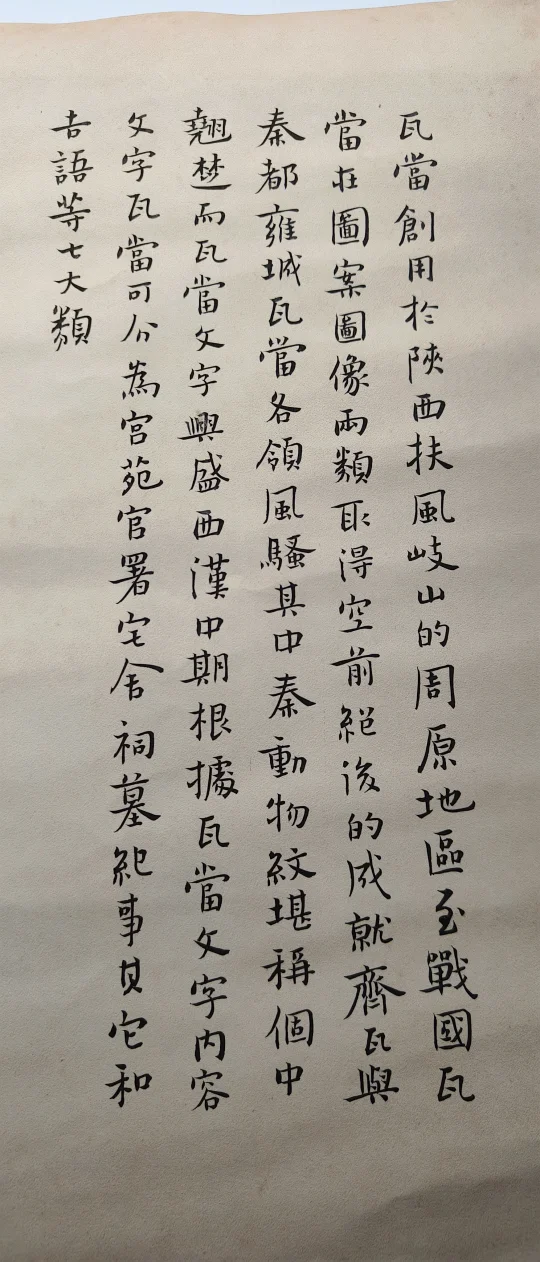 瓦當創用於陝西扶風岐山的周原地區至戰國瓦
當在圖案圖像兩類取得空前絕後的成就齊瓦與
秦都雍城瓦當各領風騷其中秦動物紋堪稱個中
翹楚而瓦當文字興盛西漢中期根據瓦當文字内容
文字瓦當可分為宫苑官署宅舍祠墓紀事其它和
吉語等七大類